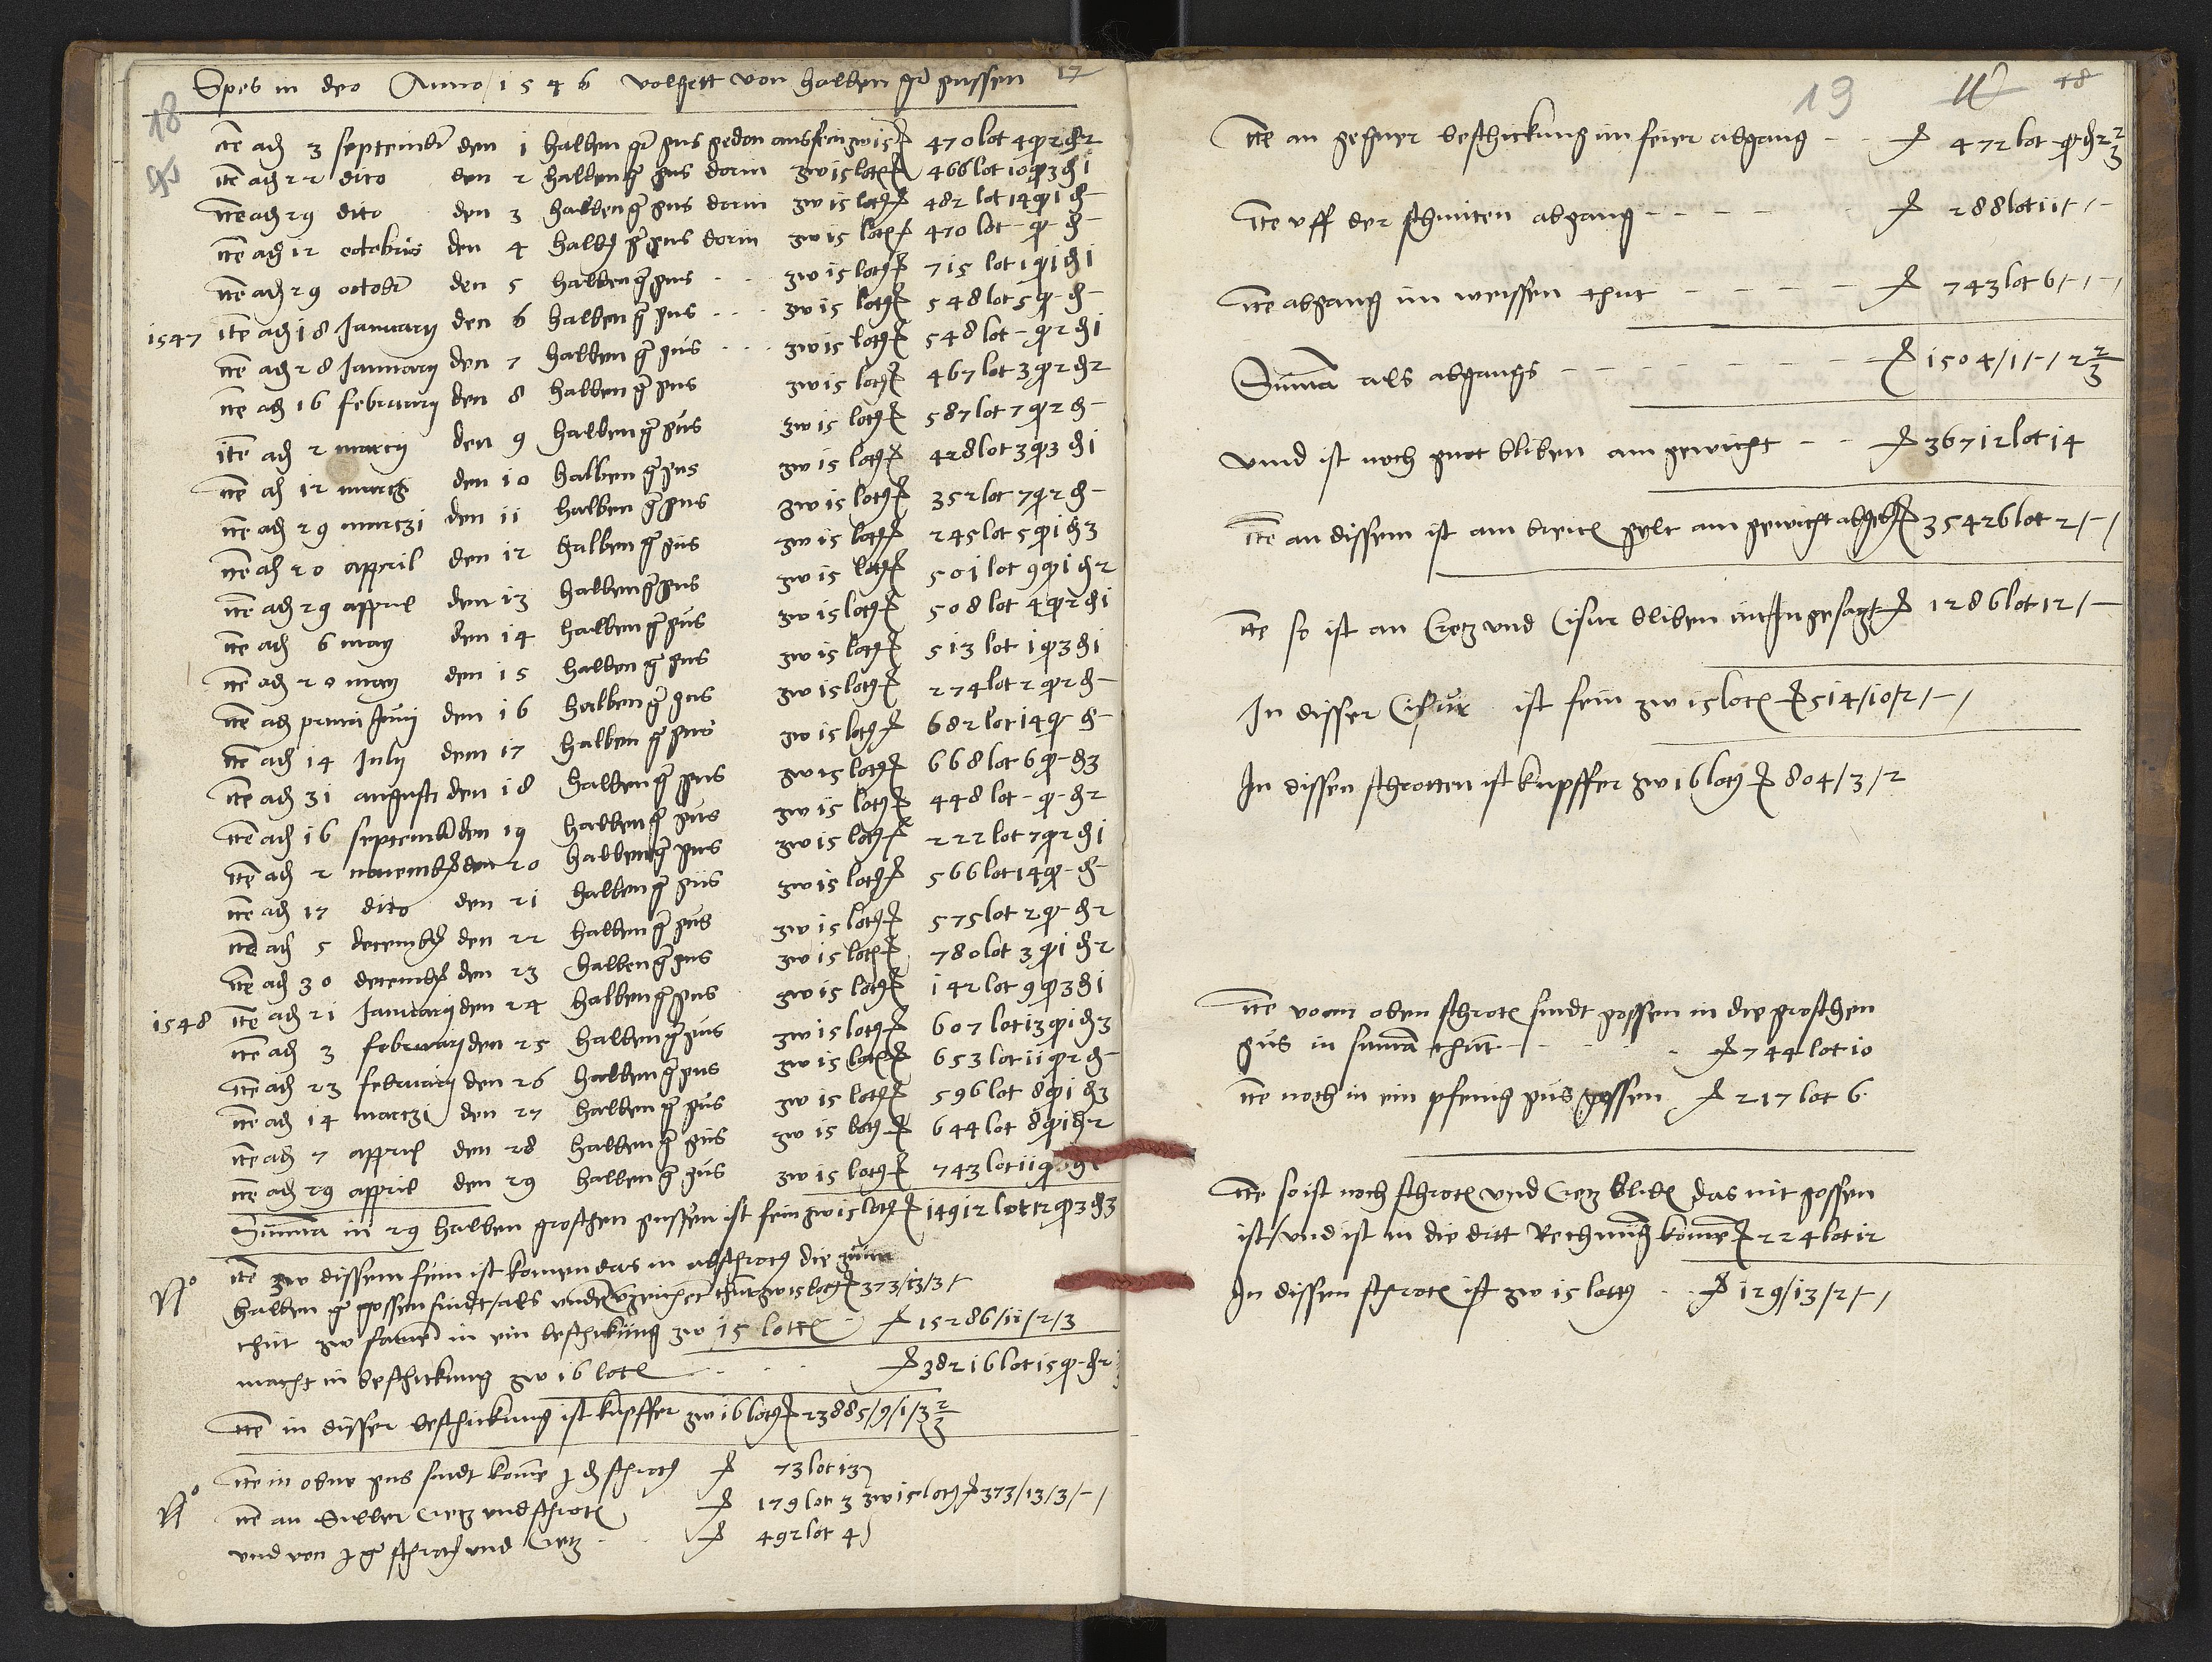 Spes in deo Anno / 1546 volgett von halben gr gussen 17
18
Ite adj 3 septembr den 1 halben gr gus gedon ans fein zw 15 470 lot 4 q 2 d 2
Ite adj 22 dito den 2 halben gr gus dorin zw 15 loten 466 lot 10 q 3 d 1
Ite adj 29 dito den 3 halben gr gus dorin zw 15 lott 482 lot 14 q 1 d –
Ite adj 12 octobris den 4 halben gr gus dorin zw 15 loten 470 lot – q – d –
Ite adj 29 octobr den 5 halben gr gus zw 15 lott 715 lot 1 q 1 d 1
1547 Ite adj 18 January den 6 halben gr gus zw 15 lott 548 lot 5 q – d –
Ite adj 28 January den 7 halben gr gus zw 15 lott 548 lot – q 2 d 1
Ite adj 16 february den 8 halben gr gus zw 15 lott 467 lot 3 q 2 d 2
Ite adj 2 marcy den 9 halben gr gus zw 15 lott 587 lot 7 q 2 d –
Ite adj 12 marcy den 10 halben gr gus zw 15 lott 428 lot 3 q 3 d 1
Ite adj 29 marczi den 11 halben gr gus zw 15 lott 352 lot 7 q 2 d –
Ite adj 20 appril den 12 halben gr gus zw 15 lott 245 lot 5 q 1 d 3
Ite adj 29 appril den 13 halben gr gus zw 15 lott 501 lot 9 q 1 d 2
Ite adj 6 may den 14 halben gr gus zw 15 lott 508 lot 4 q 2 d 1
Ite adj 20 may den 15 halben gr gus zw 15 lott 513 lot 1 q 3 d 1
Ite adj prima Juni den 16 halben gr gus zw 15 lott 274 lot 2 q 2 d –
Ite adj 14 July dem 17 halben gr gus zw 15 lott 682 lot 14 q – d –
Ite adj 31 augusti den 18 halben gr gus zw 15 lott 668 lot 6 q – d 3
Ite adj 16 septembr den 19 halben gr gus zw 15 lott 448 lot – q – d 2
Ite adj 2 novembr den 20 halben gr gus zw 15 lott 222 lot 7 q 2 d 1
Ite adj 17 dito den 21 halben gr gus zw 15 lott 566 lot 14 q – d –
Ite adj 5 decembr den 22 halben gr gus zw 15 lott 575 lot 2 q – d 2
Ite adj 30 decembr den 23 halben gr gus zw 15 lott 780 lot 3 q 1 d 2
1548 Ite adj 21 January den 24 halben gr gus zw 15 lott 142 lot 9 q 3 d 1
Ite adj 3 february den 25 halben gr gus zw 15 lott 607 lot 13 q 1 d 3
Ite adj 23 february den 26 halben gr gus zw 15 loten 653 lot 11 q 2 d –
Ite adj 14 marczi den 27 halben gr gus zw 15 lott 596 lot 8 q 1 d 3
Ite adj 7 appril den 28 halben gr gus zw 15 lott 644 lot 8 q 1 d 2
Ite adj 29 appril den 29 halben gr gus zw 15 lott 743 lot 11 q
Summa in 29 halben groschen gussen ist fein zw 15 lott 14912 lot 12 q 3 d 3
Ite zw dissem fein ist komen das in abschrott die
halben gr gossen sindt / als unden verzeichet thut zw 15 lott 373/13/3/–
thut zw samen in ein beschikung zw 15 lotten 15286/11/2/3
macht in beschickung zw 16 loten 38216 lot 15 q – d 2
Ite in disser beschickung ist kupffer zw 16 lott 23885/9/1/3 2/3
Ite in obne gus sindt kome schrott 73 lot 13
Ite an Silber Cretz und schroten 179 lot 3 zw 15 lott 373/13/3/–/
und von gr schrott und Cretz 492 lot 4
19 18
Ite an gehner beschickung im feier abgang 472 lot – q – d 2 2/3
Ite uff der schmiten abgang 288 lot 11/–/–
Ite abgang im weissen thut 743 lot 6/–/–/
Summa als abgangs 1504/1/–/2 2/3
unnd ist noch guot bliben am gewicht 36712 lot 14
Ite an dissem ist am breiten gelt am gewicht abgeben 35426 lot 2/–/
Ite so ist an Cretz und Cisur bliben 1286 lot 12/–
In disser Cisur ist fein zw 15 loten 514/10/2/–/
In dissen schrotten ist kupffer zw 16 lott 804/3/2
Ite vom oben schroten sindt gossen in die groschen
gus in suma thut 744 lot 10
Ite noch in ein pfenig gus gossen 217 lot 6
Ite so ist noch schroten und Cretz bliben das nit gossen
ist / und ist in die dritt Rechnung komen 224 lot 12
In dissen schroten ist zw 15 lotten 129/13/2/–/